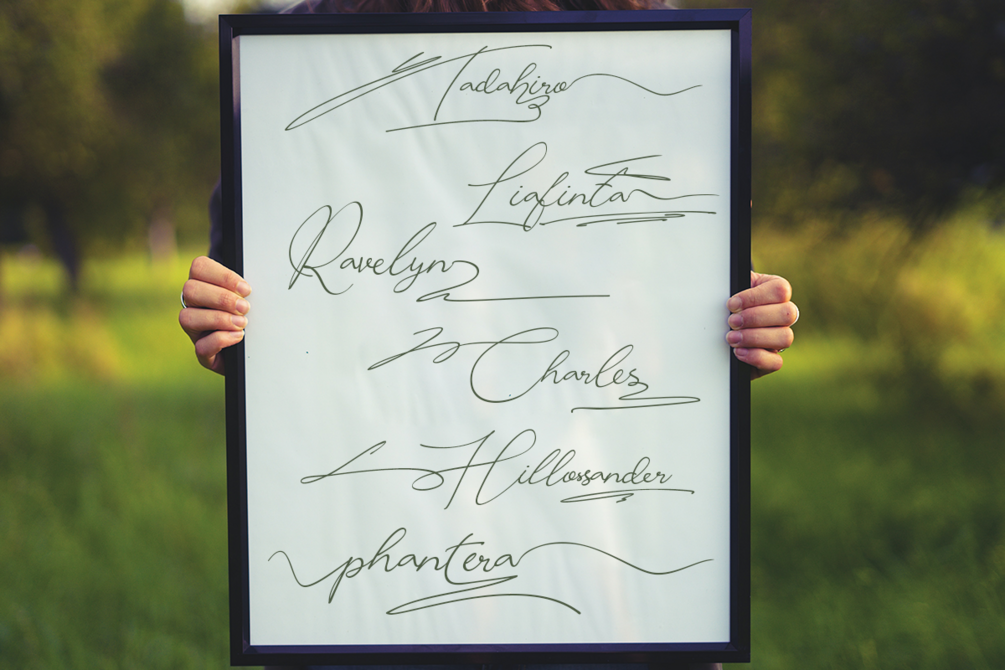 Tadahiro
Liafinta
Ravelyn
Charles
Hillossander
phantera